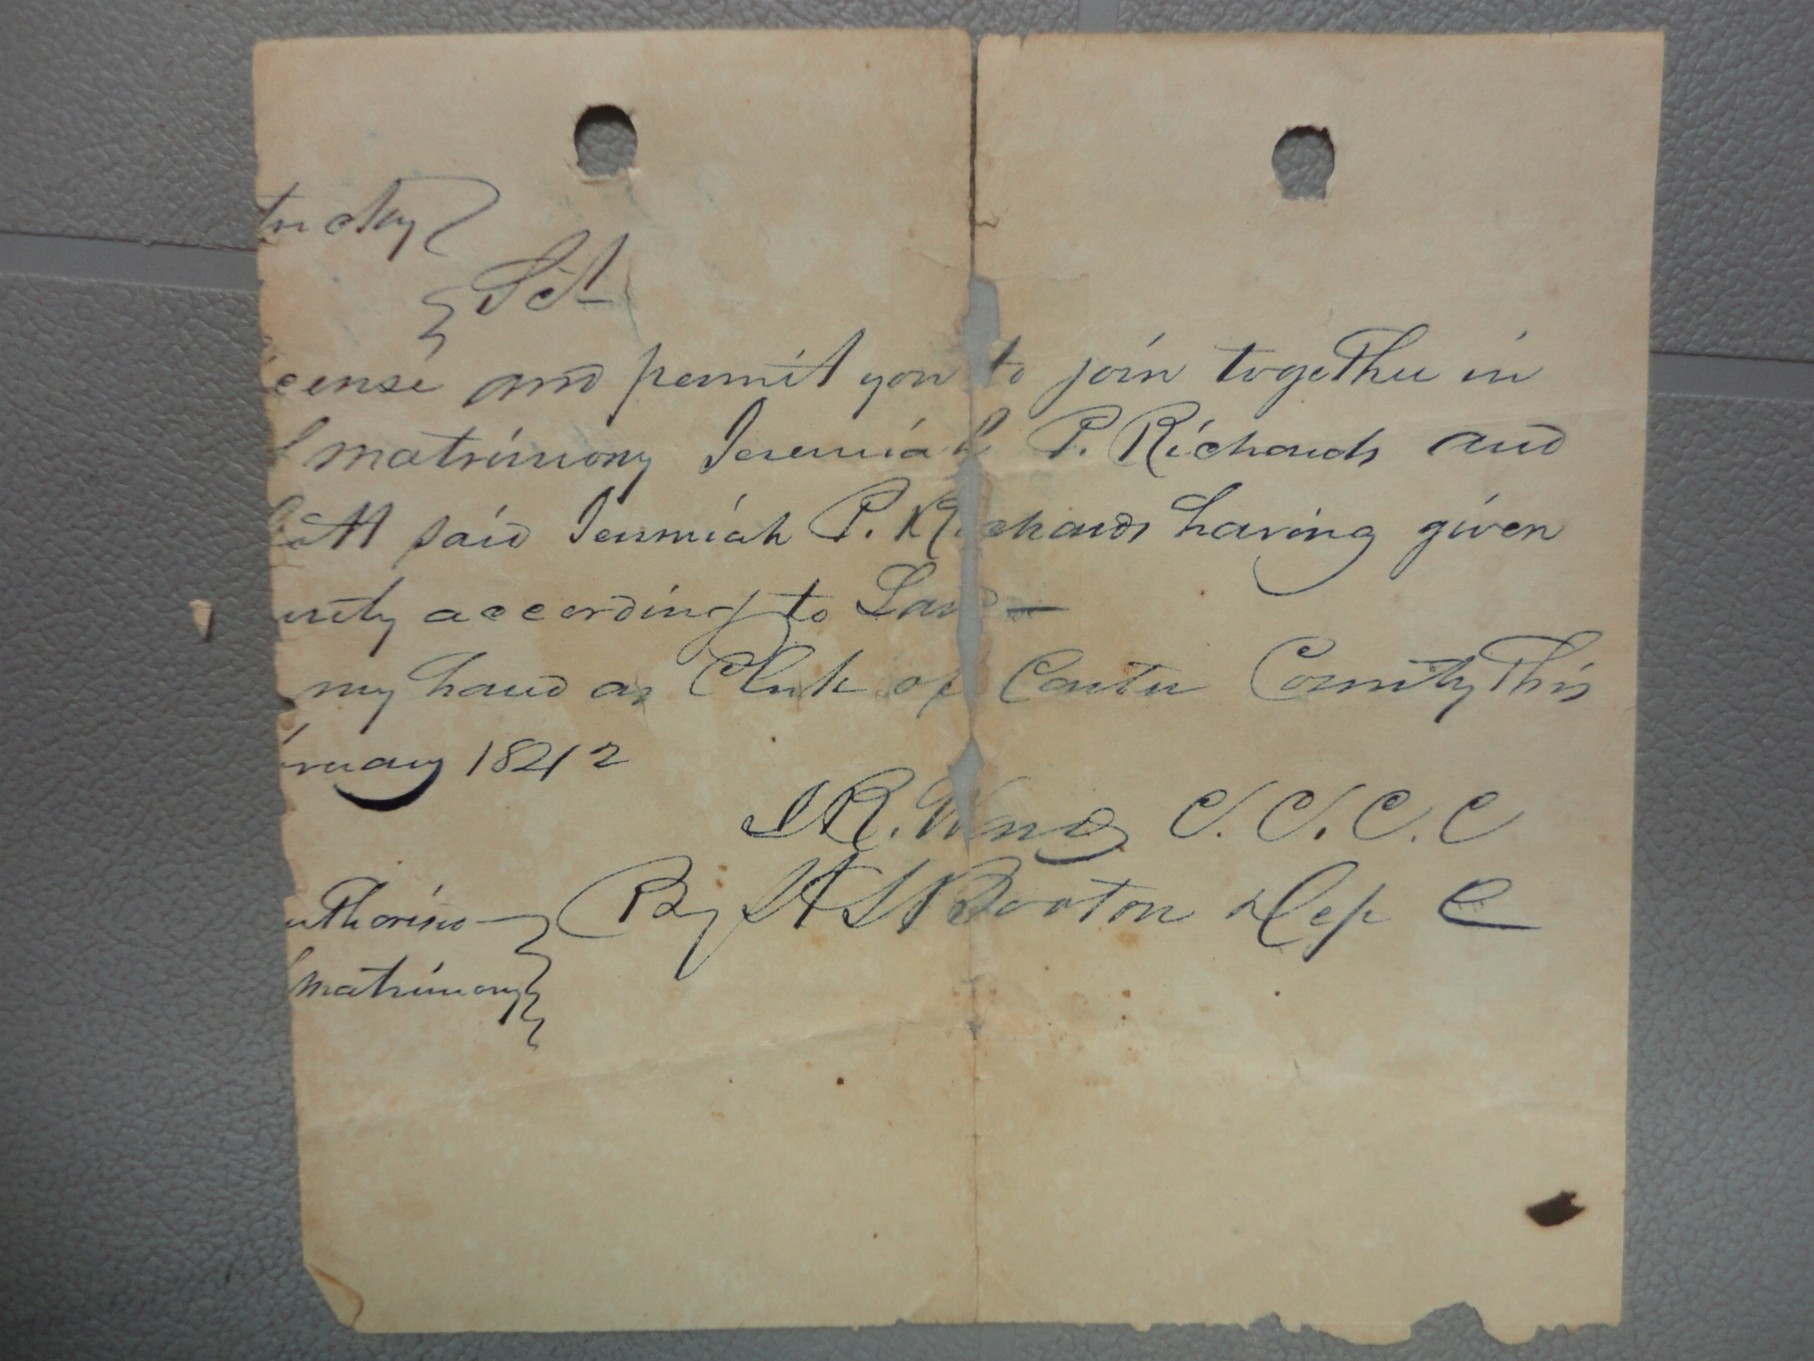 tucky
Sct
icense and permit you to join together in
matrimony Jeremiah P. Richards and
said Jeremiah P. Richards having given
urity according to Law —
my hand as Clerk of Carter County This
bruary 1842
J R. Ward C. C. C. C
By H S Booton Dep C
uthorise
matrimony